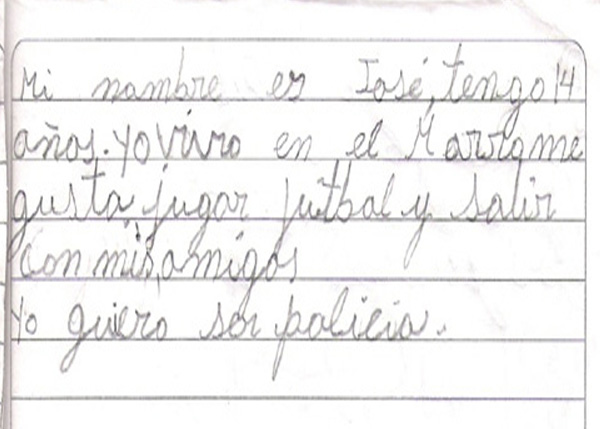 Mi nombre es José, tengo 14
años. yo vivo en el me
gusta jugar futbal y salir
con mis amigos
yo quiero ser policia.